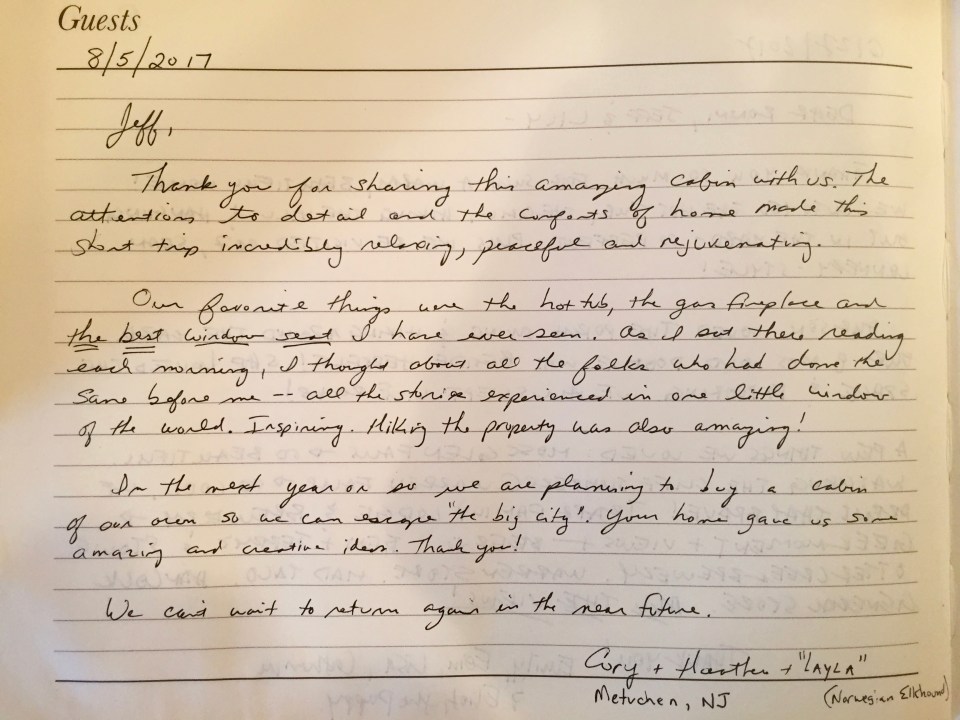 Guests
8/5/2017
Jeff,
Thank you for sharing this amazing cabin with us. The
attentions to detail and the comforts of home made this
short trip incredibly relaxing, peaceful and rejuvenating.
Our favorite things were the hot tub, the gas fireplace and
the best window seat I have ever seen. As I sat there reading
each morning, I thought about all the folks who had done the
same before me -- all the stories experienced in one little window
of the world. Inspiring. Hiking the property was also amazing!
In the next year or so we are planning to buy a cabin
of our own so we can escape "the big city". Your home gave us some
amazing and creative ideas. Thank you!
We can't wait to return again in the near future.
Cory + Heather + "LAYLA"
Metuchen, NJ (Norwegian Elkhound)